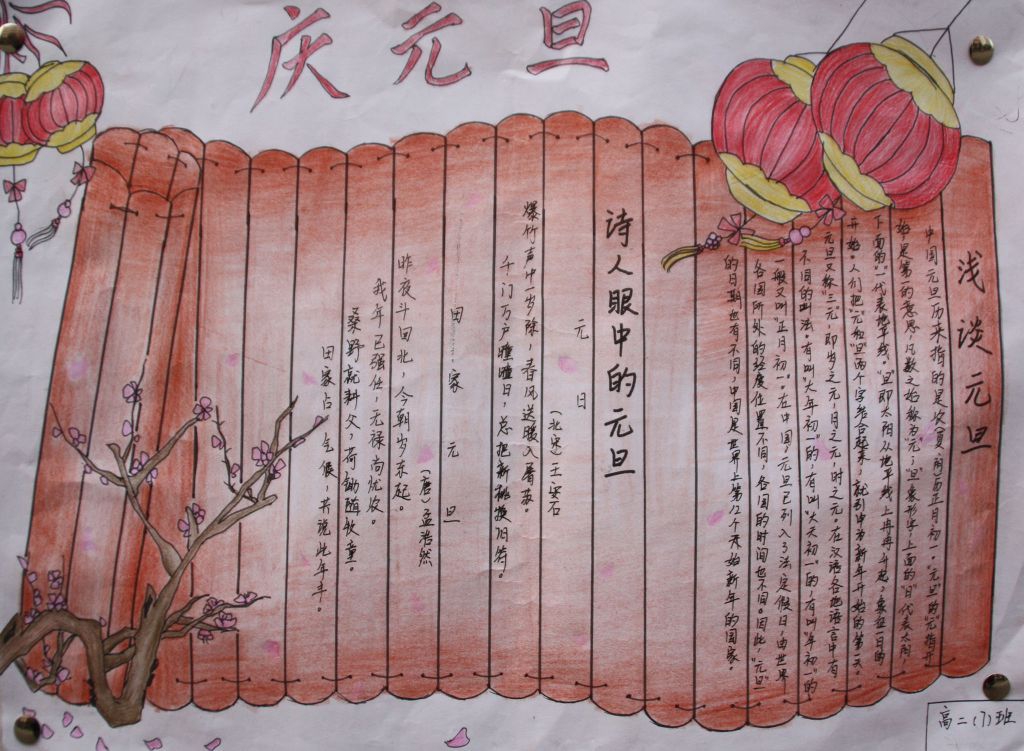 庆元旦
浅谈元旦
中国元旦历来指的是农(夏、阴)历正月初一。“元旦”的“元”指开
始,是第一的意思,凡数之始称为“元”;“旦”象形字,上面的“日”代表太阳,
下面的“一”代表地平线。“旦”即太阳从地平线上冉冉升起,象征一日的
开始。人们把“元”和“旦”两个字结合起来,就引申为新年开始的第一天。
元旦又称“三元”,即岁之元,月之元,时之元。在汉语各地语言中有
不同的叫法。有叫“大年初一”的,有叫“大天初一”的,有叫“年初一”的
一般又叫“正月初一”。在中国,元旦已列入了法定假日,由世界
各国所处的经度位置不同,各国的时间也不同。因此,“元旦”
的日期也有不同,中国是世界上第12个开始新年的国家。
诗人眼中的元旦
元日
(北宋)王安石
爆竹声中一岁除,春风送暖入屠苏。
千门万户曈曈日,总把新桃换旧符。
田家元旦
(唐)孟浩然
昨夜斗回北,今朝岁东起。
我年已强仕,无禄尚忧农。
桑野就耕父,荷锄随牧童。
田家占气候,共说此年丰。
高二(7)班